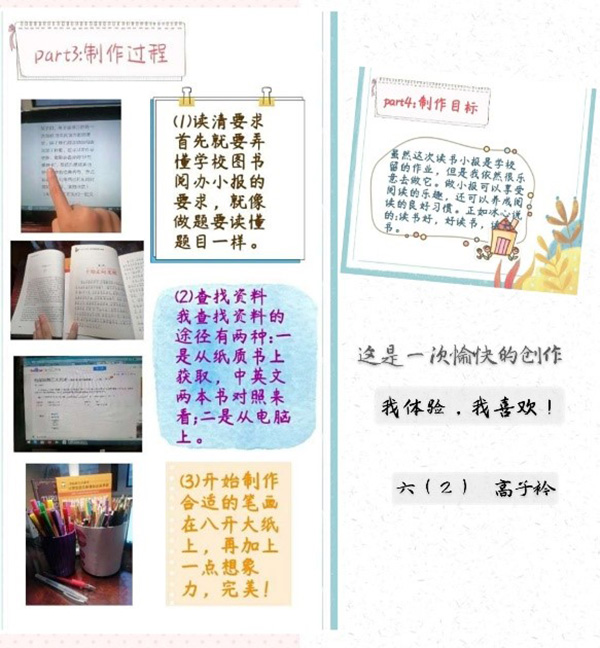 part3:制作过程
(1)读清要求
首先就要弄
懂学校图书
阅办小报的
要求，就像
做题要读懂
题目一样。
(2)查找资料
我查找资料的
途径有两种:一
是从纸质书上
获取，中英文
两本书对照来
看;二是从电脑
上。
(3)开始制作
合适的笔画
在八开大纸
上，再加上
一点想象
力，完美！
part4:制作目标
虽然这次读书小报是学校
留的作业，但是我依然很乐
意去做它。做小报可以享受
阅读的乐趣，还可以养成阅
读的良好习惯。正如冰心说
的:读书好，好读书，
书。
这是一次愉快的创作
我体验，我喜欢！
六（2） 高子衿